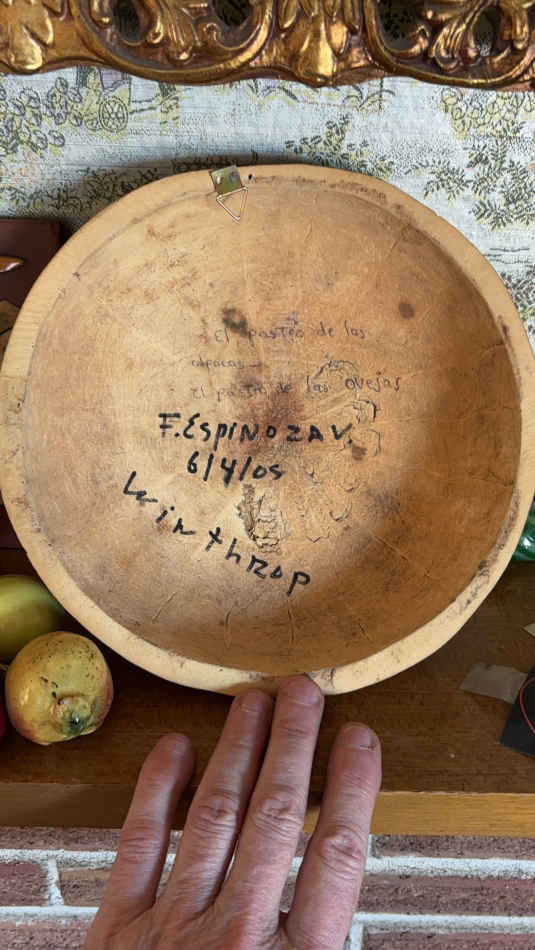 El pasteo de las
alpacas -
El pasteo de las ovejas
F. ESPINOZA V.
6/4/05
Winthrop